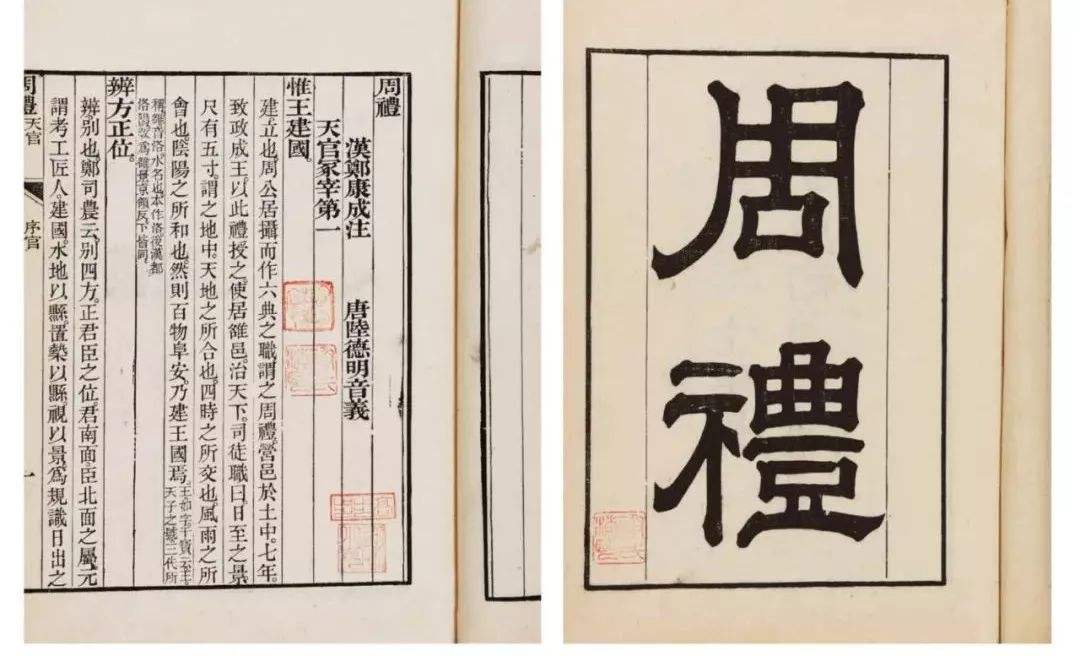 周禮
漢鄭康成注 唐陸德明音義
天官冢宰第一
惟王建國。
建立也。周公居攝而作六典之職。謂之周禮。營邑於土中。七年。
致政成王。以此禮授之。使居雒邑。治天下。司徒職曰。日至之景
尺有五寸。謂之地中。天地之所合也。四時之所交也。風雨之所
會也。陰陽之所和也。然則百物阜安。乃建王國焉。王如字干寶云王
天子之號三代所
稱雒音洛水名也本作洛後漢都
洛陽改爲雒景京領反下皆同
辨方正位。
辨別也。鄭司農云。別四方。正君臣之位。君南面。臣北面之屬。元
謂考工匠人。建國。水地以縣。置槷以縣。視以景。爲規。識日出之
周禮 天官 序官 一
周禮